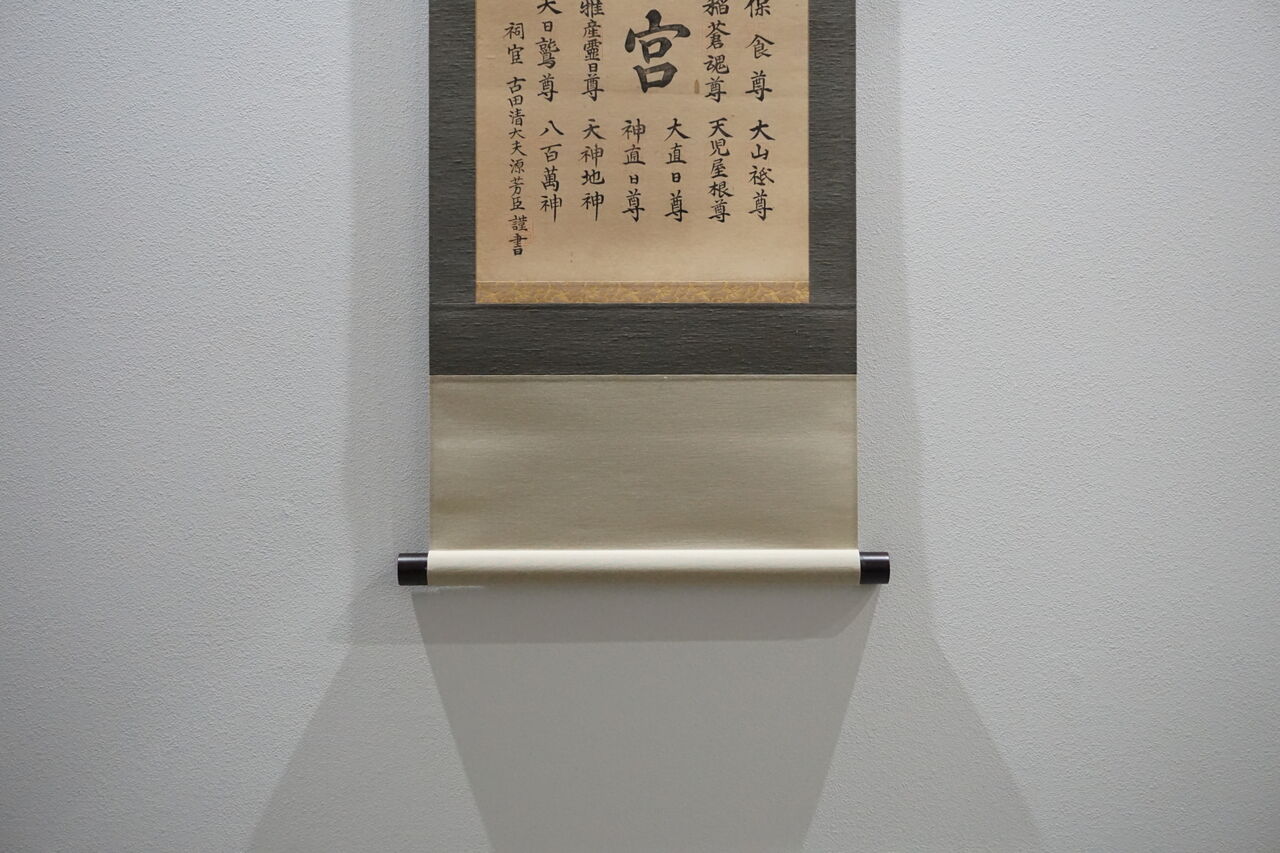 保食尊
大山祗尊
稲蒼魂尊
天児屋根尊
宮
大直日尊
神直日尊
稚産靈日尊
天神地神
大日鷲尊
八百萬神
祠官 古田清大夫源芳臣 謹書